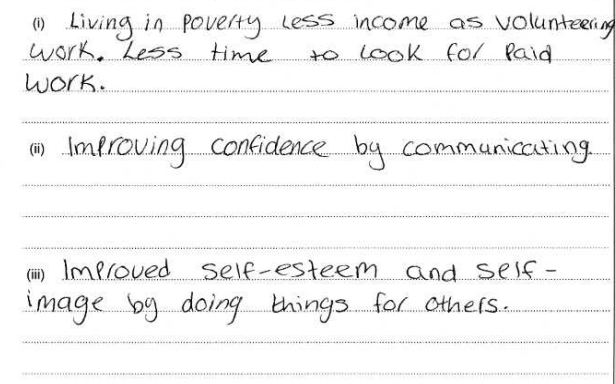 (i) Living in poverty less income as volunteering
work. Less time to look for paid
work.
(ii) Improving confidence by communicating
(iii) Improved self-esteem and self-
image by doing things for others.